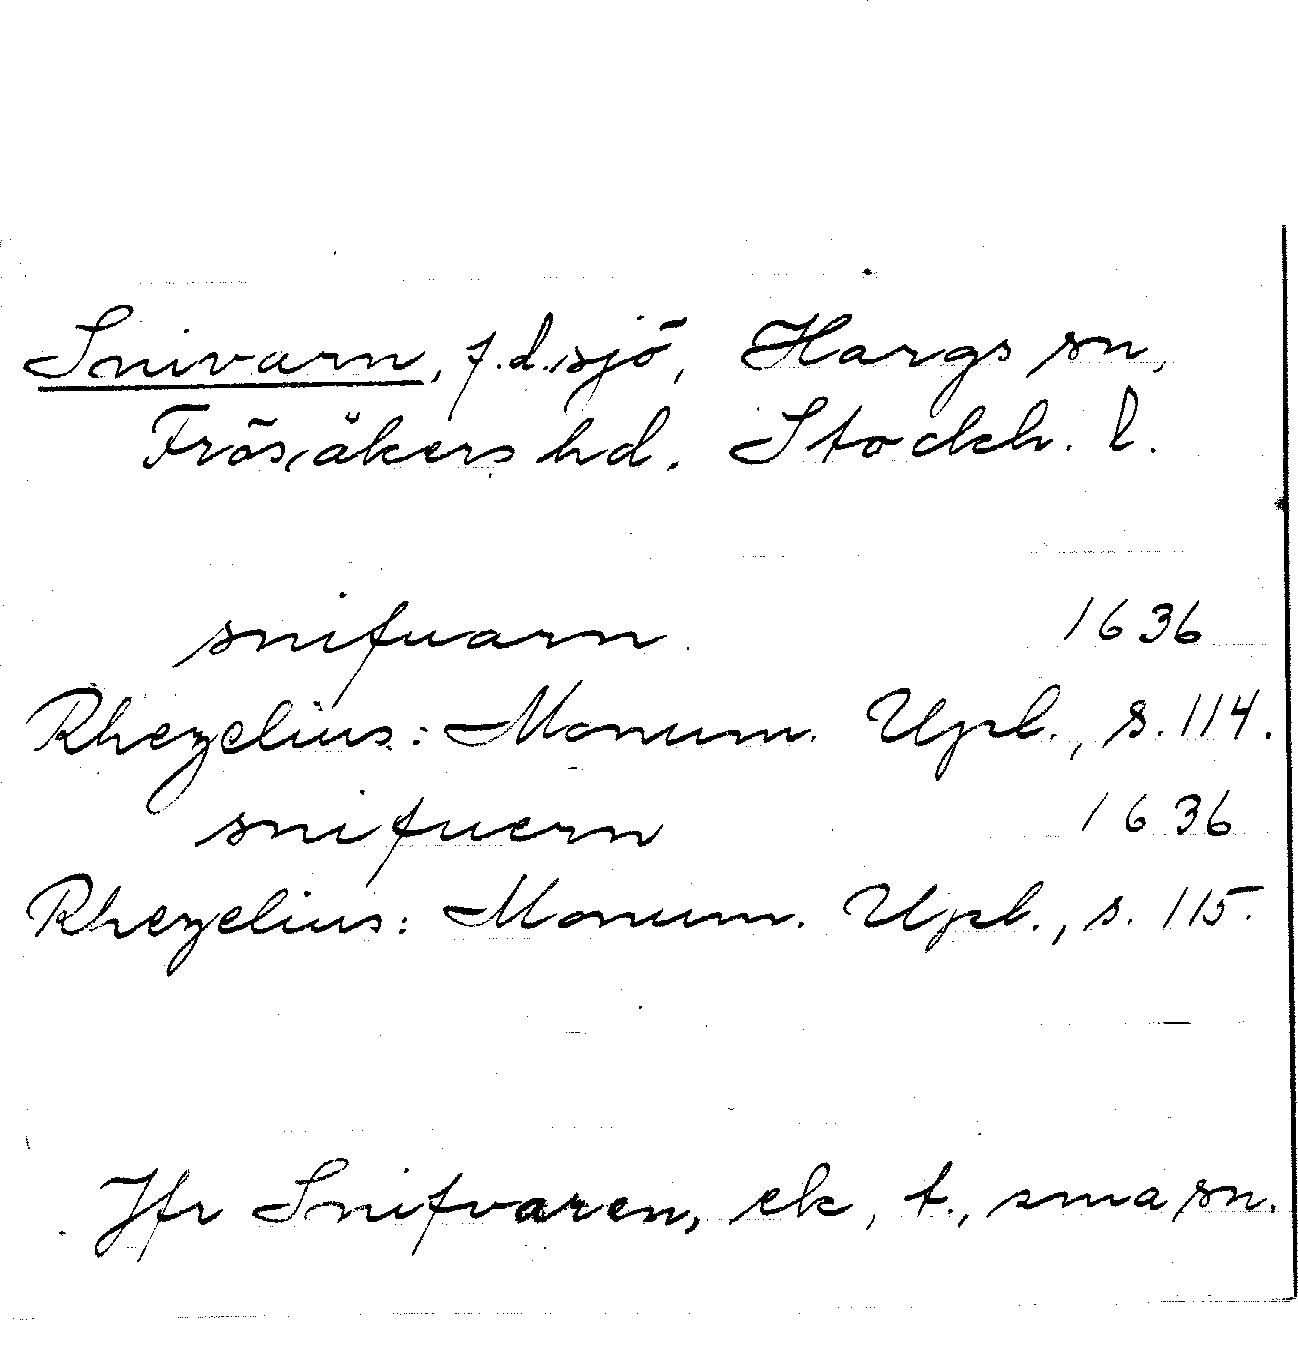 Snivarn, f.d. sjö, Hargs sn,
Frösåkers hd. Stockh. l.
snifuarn 1636
Rhezelius: Monum. Upl., s. 114.
snifuern 1636
Rhezelius: Monum. Upl., s. 115.
Jfr Snifvaren, ek, t., sma sn.